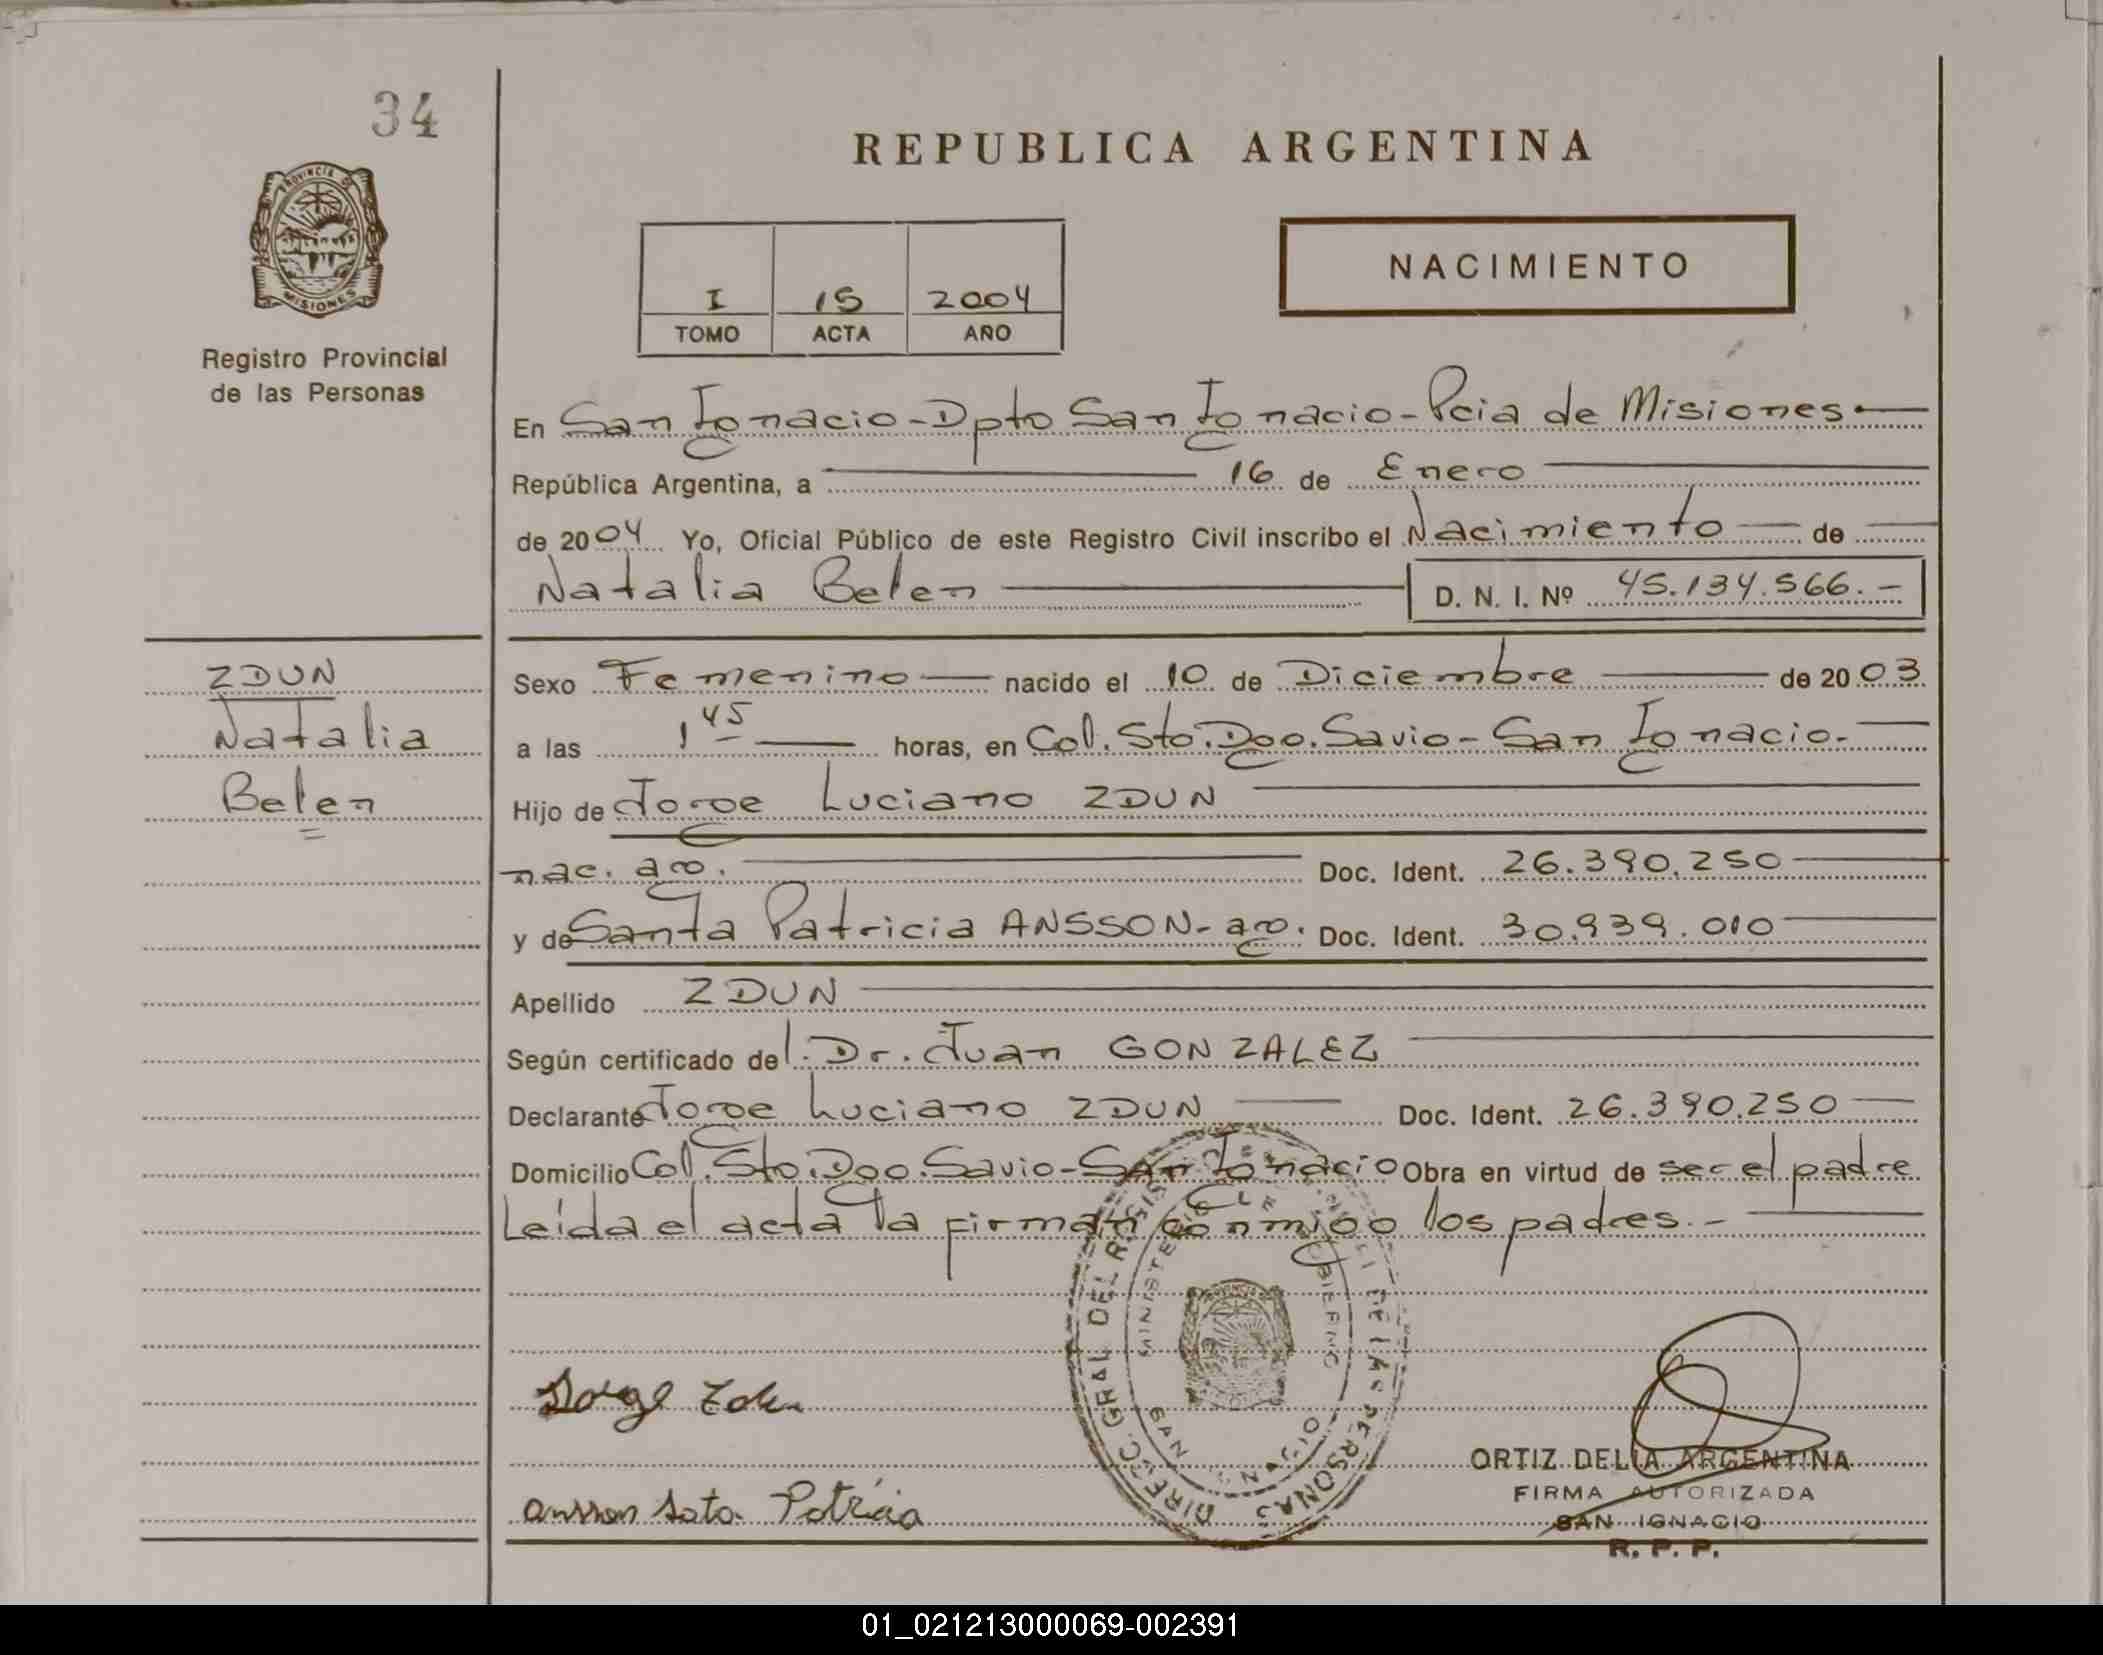 34
REPUBLICA ARGENTINA
PROVINCIA DE
MISIONES
Registro Provincial
de las Personas
I 15 2004
TOMO ACTA AÑO
NACIMIENTO
En San Ignacio-Dpto San Ignacio-Pcia de Misiones.
República Argentina, a 16 de Enero
de 2004 Yo, Oficial Público de este Registro Civil inscribo el Nacimiento de
Natalia Belen D. N. I. Nº 45.134.566.-
ZDUN
Natalia
Belen
Sexo Femenino nacido el 10 de Diciembre de 2003
a las 1 45 horas, en Col. Sto. Dgo. Savio - San Ignacio.
Hijo de Jorge Luciano ZDUN
nac. arg. Doc. Ident. 26.390.250
y de Santa Patricia ANSSON- arg. Doc. Ident. 30.939.010
Apellido ZDUN
Según certificado del. Dr. Juan GONZALEZ
Declarante Jorge Luciano ZDUN Doc. Ident. 26.390.250
Domicilio Col. Sto. Dgo. Savio-San Ignacio Obra en virtud de ser el padre
Leída el acta la firman conmigo los padres.-
DIRECC. GRAL DEL REGIS DE LAS PERSONAS
MINISTERIO DE GOBIERNO
SAN IGNACIO
Jorge Zdun
Ansson Sata Patricia
ORTIZ DELIA ARGENTINA
FIRMA AUTORIZADA
SAN IGNACIO
R. P. P.
01_021213000069-002391